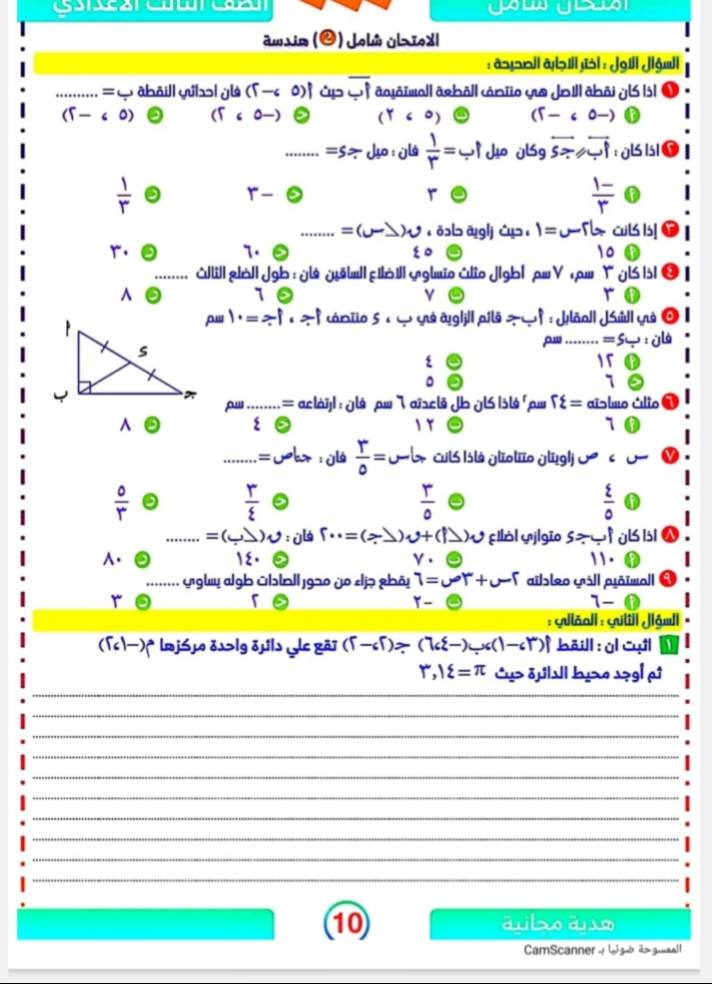 امتحان شامل
الصف الثالث الاعدادي
الامتحان شامل (2) هندسة
السؤال الاول : اختر الاجابة الصحيحة :
١ اذا كان نقطة الاصل هي منتصف القطعة المستقيمة أب حيث أ(٥ ، -٢) فان احداثي النقطة ب = ..........
أ (-٥ ، -٢) ب (٥ ، ٢) ج (-٥ ، ٢) د (٥ ، -٢)
٢ اذا كان : أب // جـ٤ وكان ميل أب = ١/٣ فان : ميل جـ٤ = ........
أ -١/٣ ب ٣ ج -٣ د ١/٣
٣ إذا كانت جا٢س = ١ ، حيث زاوية حادة ، ق(∠س) = ........
أ ١٥ ب ٤٥ ج ٦٠ د ٣٠
٤ اذا كان ٣ سم ، ٧ سم أطوال مثلث متساوي الاضلاع الساقين فان : طول الضلع الثالث ........
أ ٣ ب ٧ ج ٦ د ٨
٥ في الشكل المقابل : أب جـ قائم الزاوية في ب ، ٤ منتصف أجـ ، أجـ = ١٠ سم
فان : ب٤ = ........ سم
أ ١٢ ب ٤
ج ٦ د ٥
أ
٤
ب جـ
٦ مثلث مساحته = ٢٤ سم٢ فاذا كان طل قاعدته ٦ سم فان : ارتفاعه = ........ سم
أ ٦ ب ١٢ ج ٤ د ٨
٧ س ، ص زاويتان متتامتان فاذا كانت جاس = ٣/٥ فان : جتاص = ........
أ ٤/٥ ب ٣/٥ ج ٣/٤ د ٥/٣
٨ اذا كان أب جـ٤ متوازي اضلاع ق(∠أ)+ق(∠جـ)=٢٠٠ فان : ق(∠ب) = ........
أ ١١٠ ب ٧٠ ج ١٤٠ د ٨٠
٩ المستقيم الذي معادلته ٢س+٣ص=٦ يقطع جزاء من محور الصادات طوله يساوي ........
أ -٦ ب -٢ ج ٢ د ٣
السؤال الثاني : المقالي :
١ اثبت ان : النقط أ(٣،-١)،ب(-٤،٦) جـ(٢،-٢) تقع علي دائرة واحدة مركزها م(-١،٢)
ثم أوجد محيط الدائرة حيث π = ٣,١٤
10
هدية مجانية
الممسوحة ضوئيا بـ CamScanner